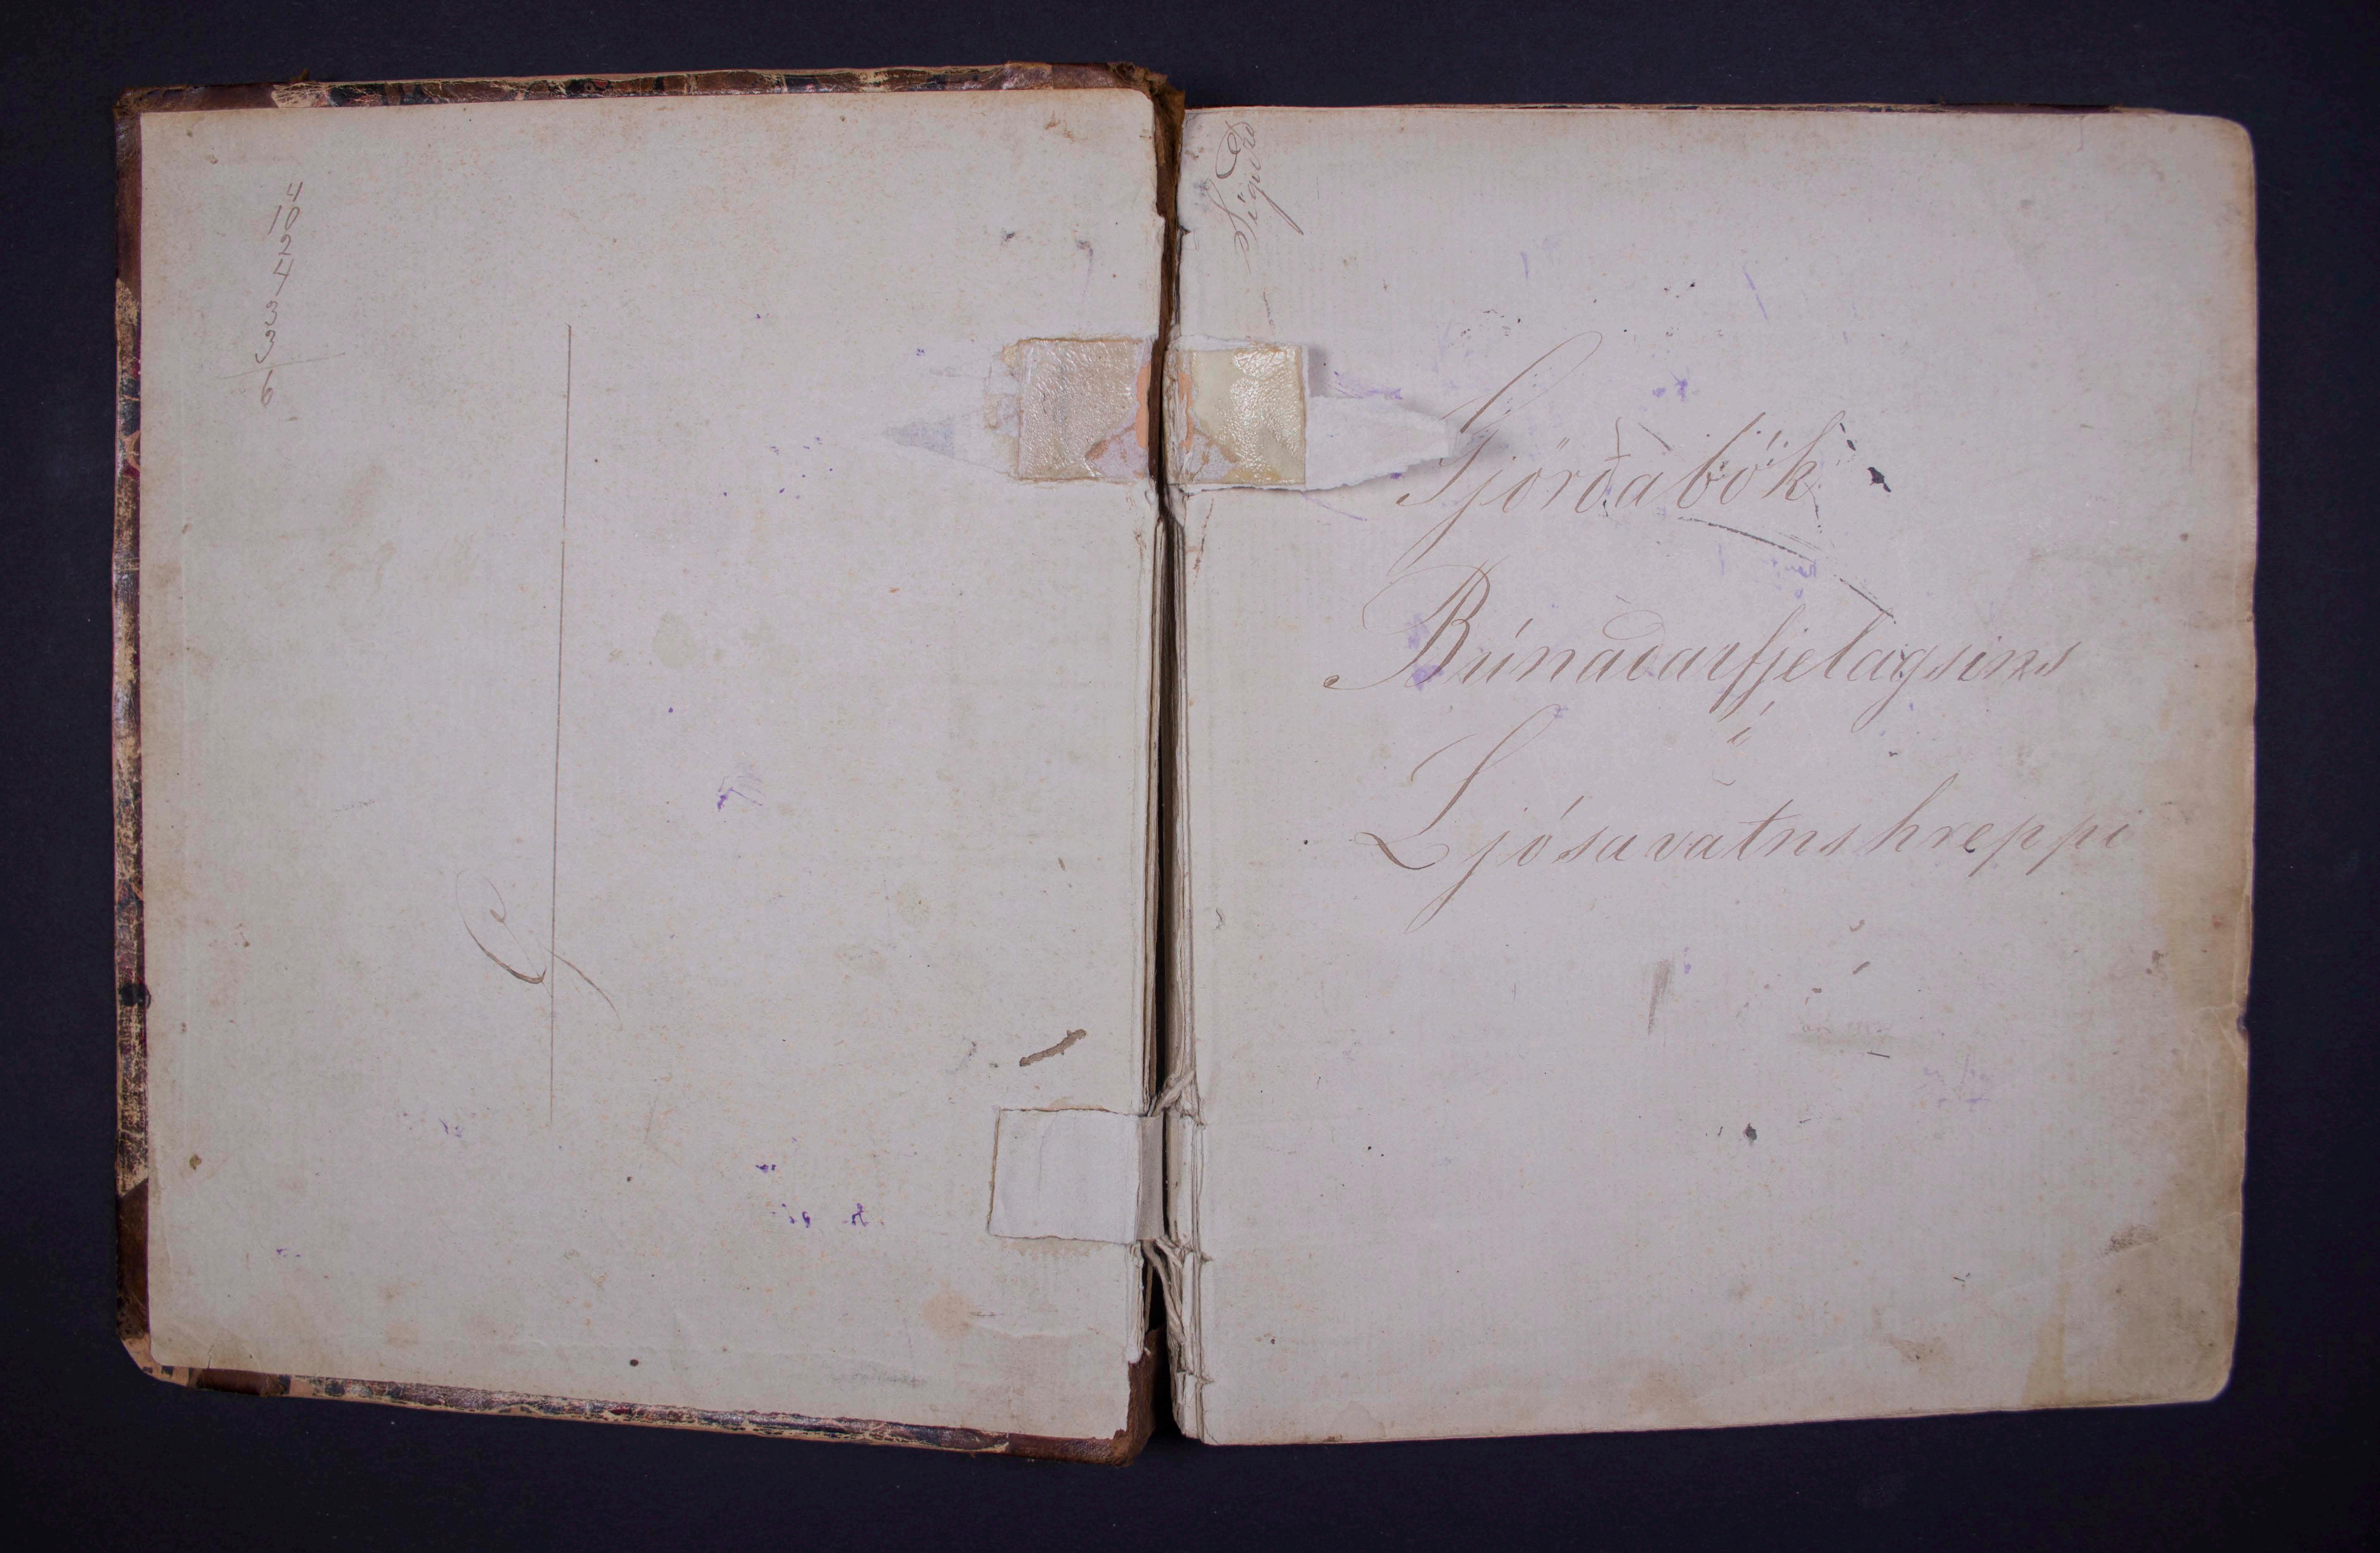 4
10
2
4
3
3
6
Sigurð
Gjörðabók
Búnaðarfjelagsins
í
Ljósavatnshreppi